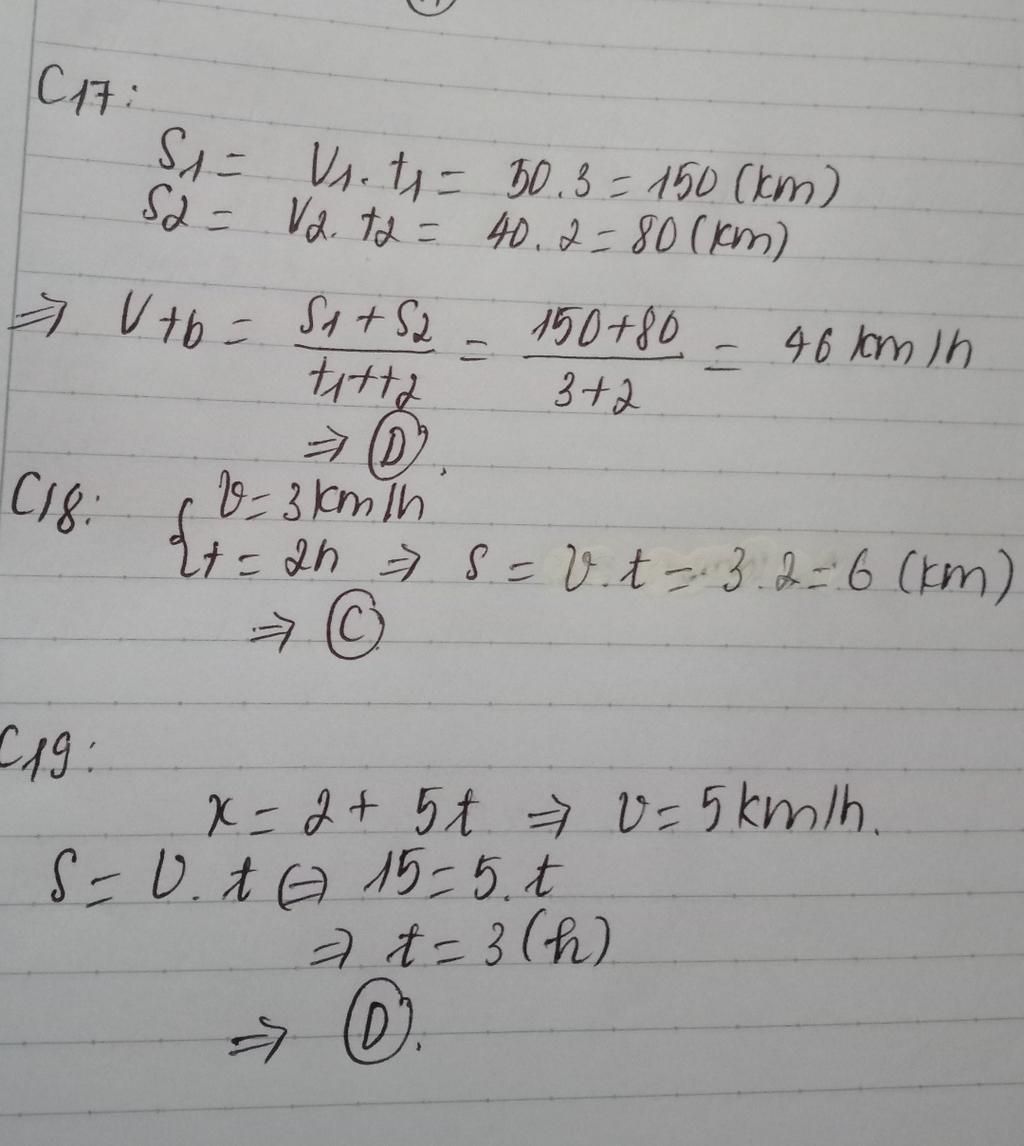 C17:
S1 = V1.t1 = 50.3 = 150 (km)
S2 = V2.t2 = 40.2 = 80 (km)
⇒ Vtb = (S1+S2)/(t1+t2) = (150+80)/(3+2) = 46 km/h
⇒ D.
C18: { v = 3 km/h
t = 2h ⇒ s = v.t = 3.2 = 6 (km)
⇒ C
C19:
x = 2 + 5t ⇒ v = 5 km/h.
S = v.t ⇔ 15 = 5.t
⇒ t = 3 (h)
⇒ D.